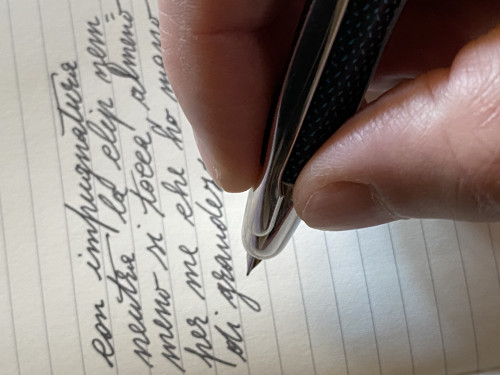 con impugnatura
neutra la clip nem=
meno si tocca, almeno
per me che ho mano
di